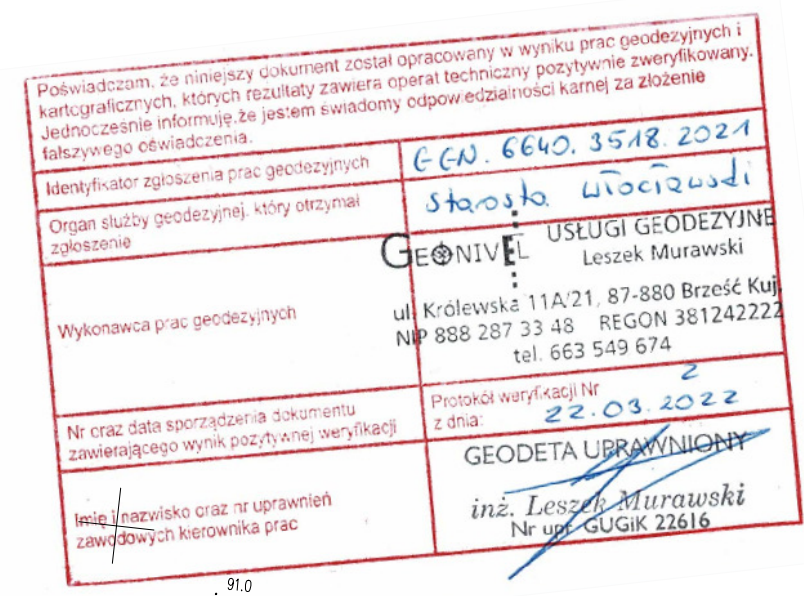 Poświadczam, że niniejszy dokument został opracowany w wyniku prac geodezyjnych i
kartograficznych, których rezultaty zawiera operat techniczny pozytywnie zweryfikowany.
Jednocześnie informuję,że jestem świadomy odpowiedzialności karnej za złożenie
fałszywego oświadczenia.
Identyfikator zgłoszenia prac geodezyjnych
GGN. 6640. 3518. 2021
Organ służby geodezyjnej, który otrzymał
zgłoszenie
Starosta włocławski
Wykonawca prac geodezyjnych
GEONIVEL USŁUGI GEODEZYJNE
Leszek Murawski
ul. Królewska 11A/21, 87-880 Brześć Kuj.
NIP 888 287 33 48 REGON 381242222
tel. 663 549 674
Nr oraz data sporządzenia dokumentu
zawierającego wynik pozytywnej weryfikacji
Protokół weryfikacji Nr 2
z dnia: 22.03.2022
Imię i nazwisko oraz nr uprawnień
zawodowych kierownika prac
GEODETA UPRAWNIONY
inż. Leszek Murawski
Nr upr. GUGiK 22616
91.0